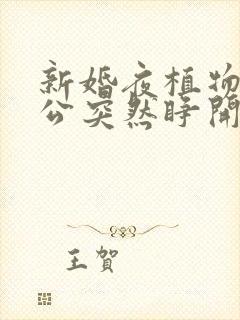 新婚夜植物
公突然睁開
王賀